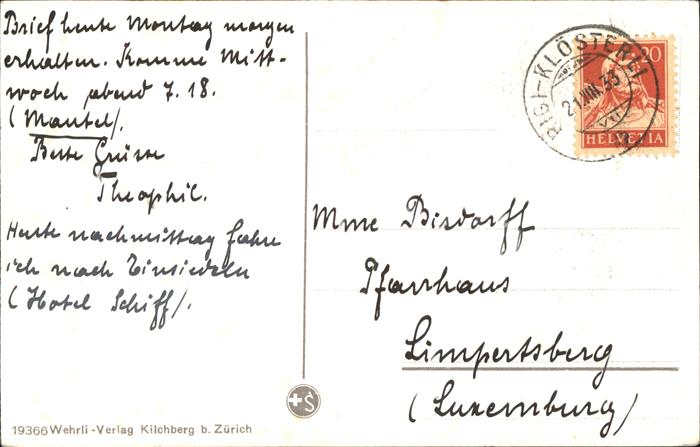 Brief heute Montag morgen
erhalten. Komme Mitt-
woch abend 7.18.
(Mantel).
Beste Grüsse
Theophil.
Heute nachmittag fahre
ich nach Einsiedeln
(Hotel Schiff).
RIGI-KLÖSTERLI
21.VIII.33
20
HELVETIA
Mme Bisdorff
Pfarrhaus
Limpertsberg
(Luxemburg)
19366 Wehrli-Verlag Kilchberg b. Zürich